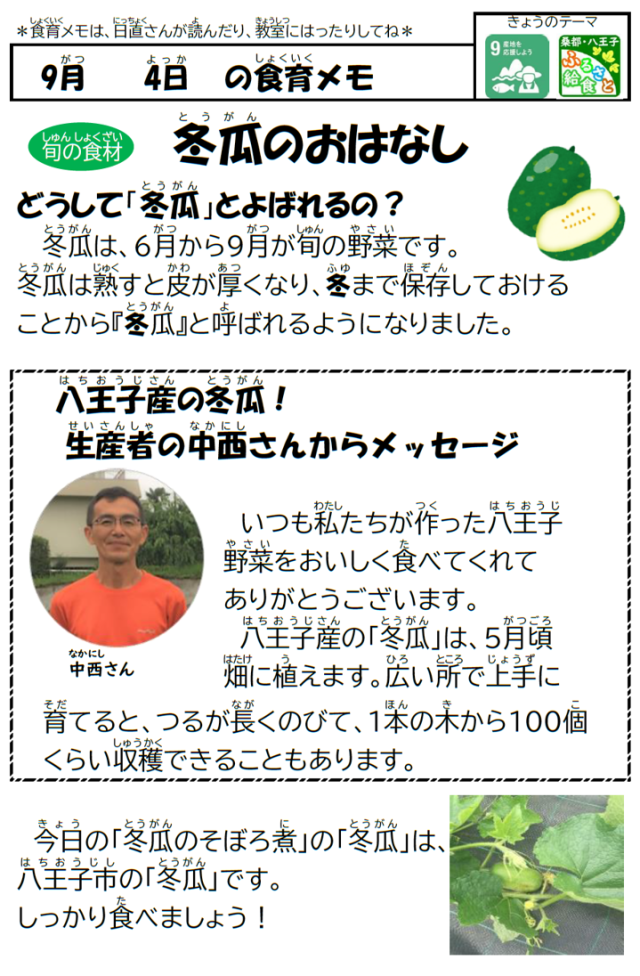 ＊食育メモは、日直さんが読んだり、教室にはったりしてね＊
きょうのテーマ
9月　4日　の食育メモ
9 産地を応援しよう
桑都・八王子
ふるさと
給食
旬の食材
冬瓜のおはなし
どうして「冬瓜」とよばれるの？
冬瓜は、6月から9月が旬の野菜です。
冬瓜は熟すと皮が厚くなり、冬まで保存しておける
ことから『冬瓜』と呼ばれるようになりました。
八王子産の冬瓜！
生産者の中西さんからメッセージ
いつも私たちが作った八王子
野菜をおいしく食べてくれて
ありがとうございます。
八王子産の「冬瓜」は、5月頃
畑に植えます。広い所で上手に
育てると、つるが長くのびて、1本の木から100個
くらい収穫できることもあります。
中西さん
今日の「冬瓜のそぼろ煮」の「冬瓜」は、
八王子市の「冬瓜」です。
しっかり食べましょう！